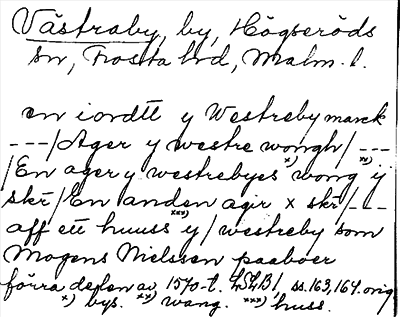 Västraby, by, Högseröds
sn, Frosta hd, Malm. l.
en iordtt y Westreby marck
---/Ager y westre wongh/---
/En ager y westrebyes x) wong xx) y
skr/En anden agir x skr/---
aff ett huuss xxx) y/westreby som
Mogens Nielssen paaboer
förra delen av 1570-t. LLB1, ss. 163, 164. orig
x) bys. xx) wang. xxx) huss.